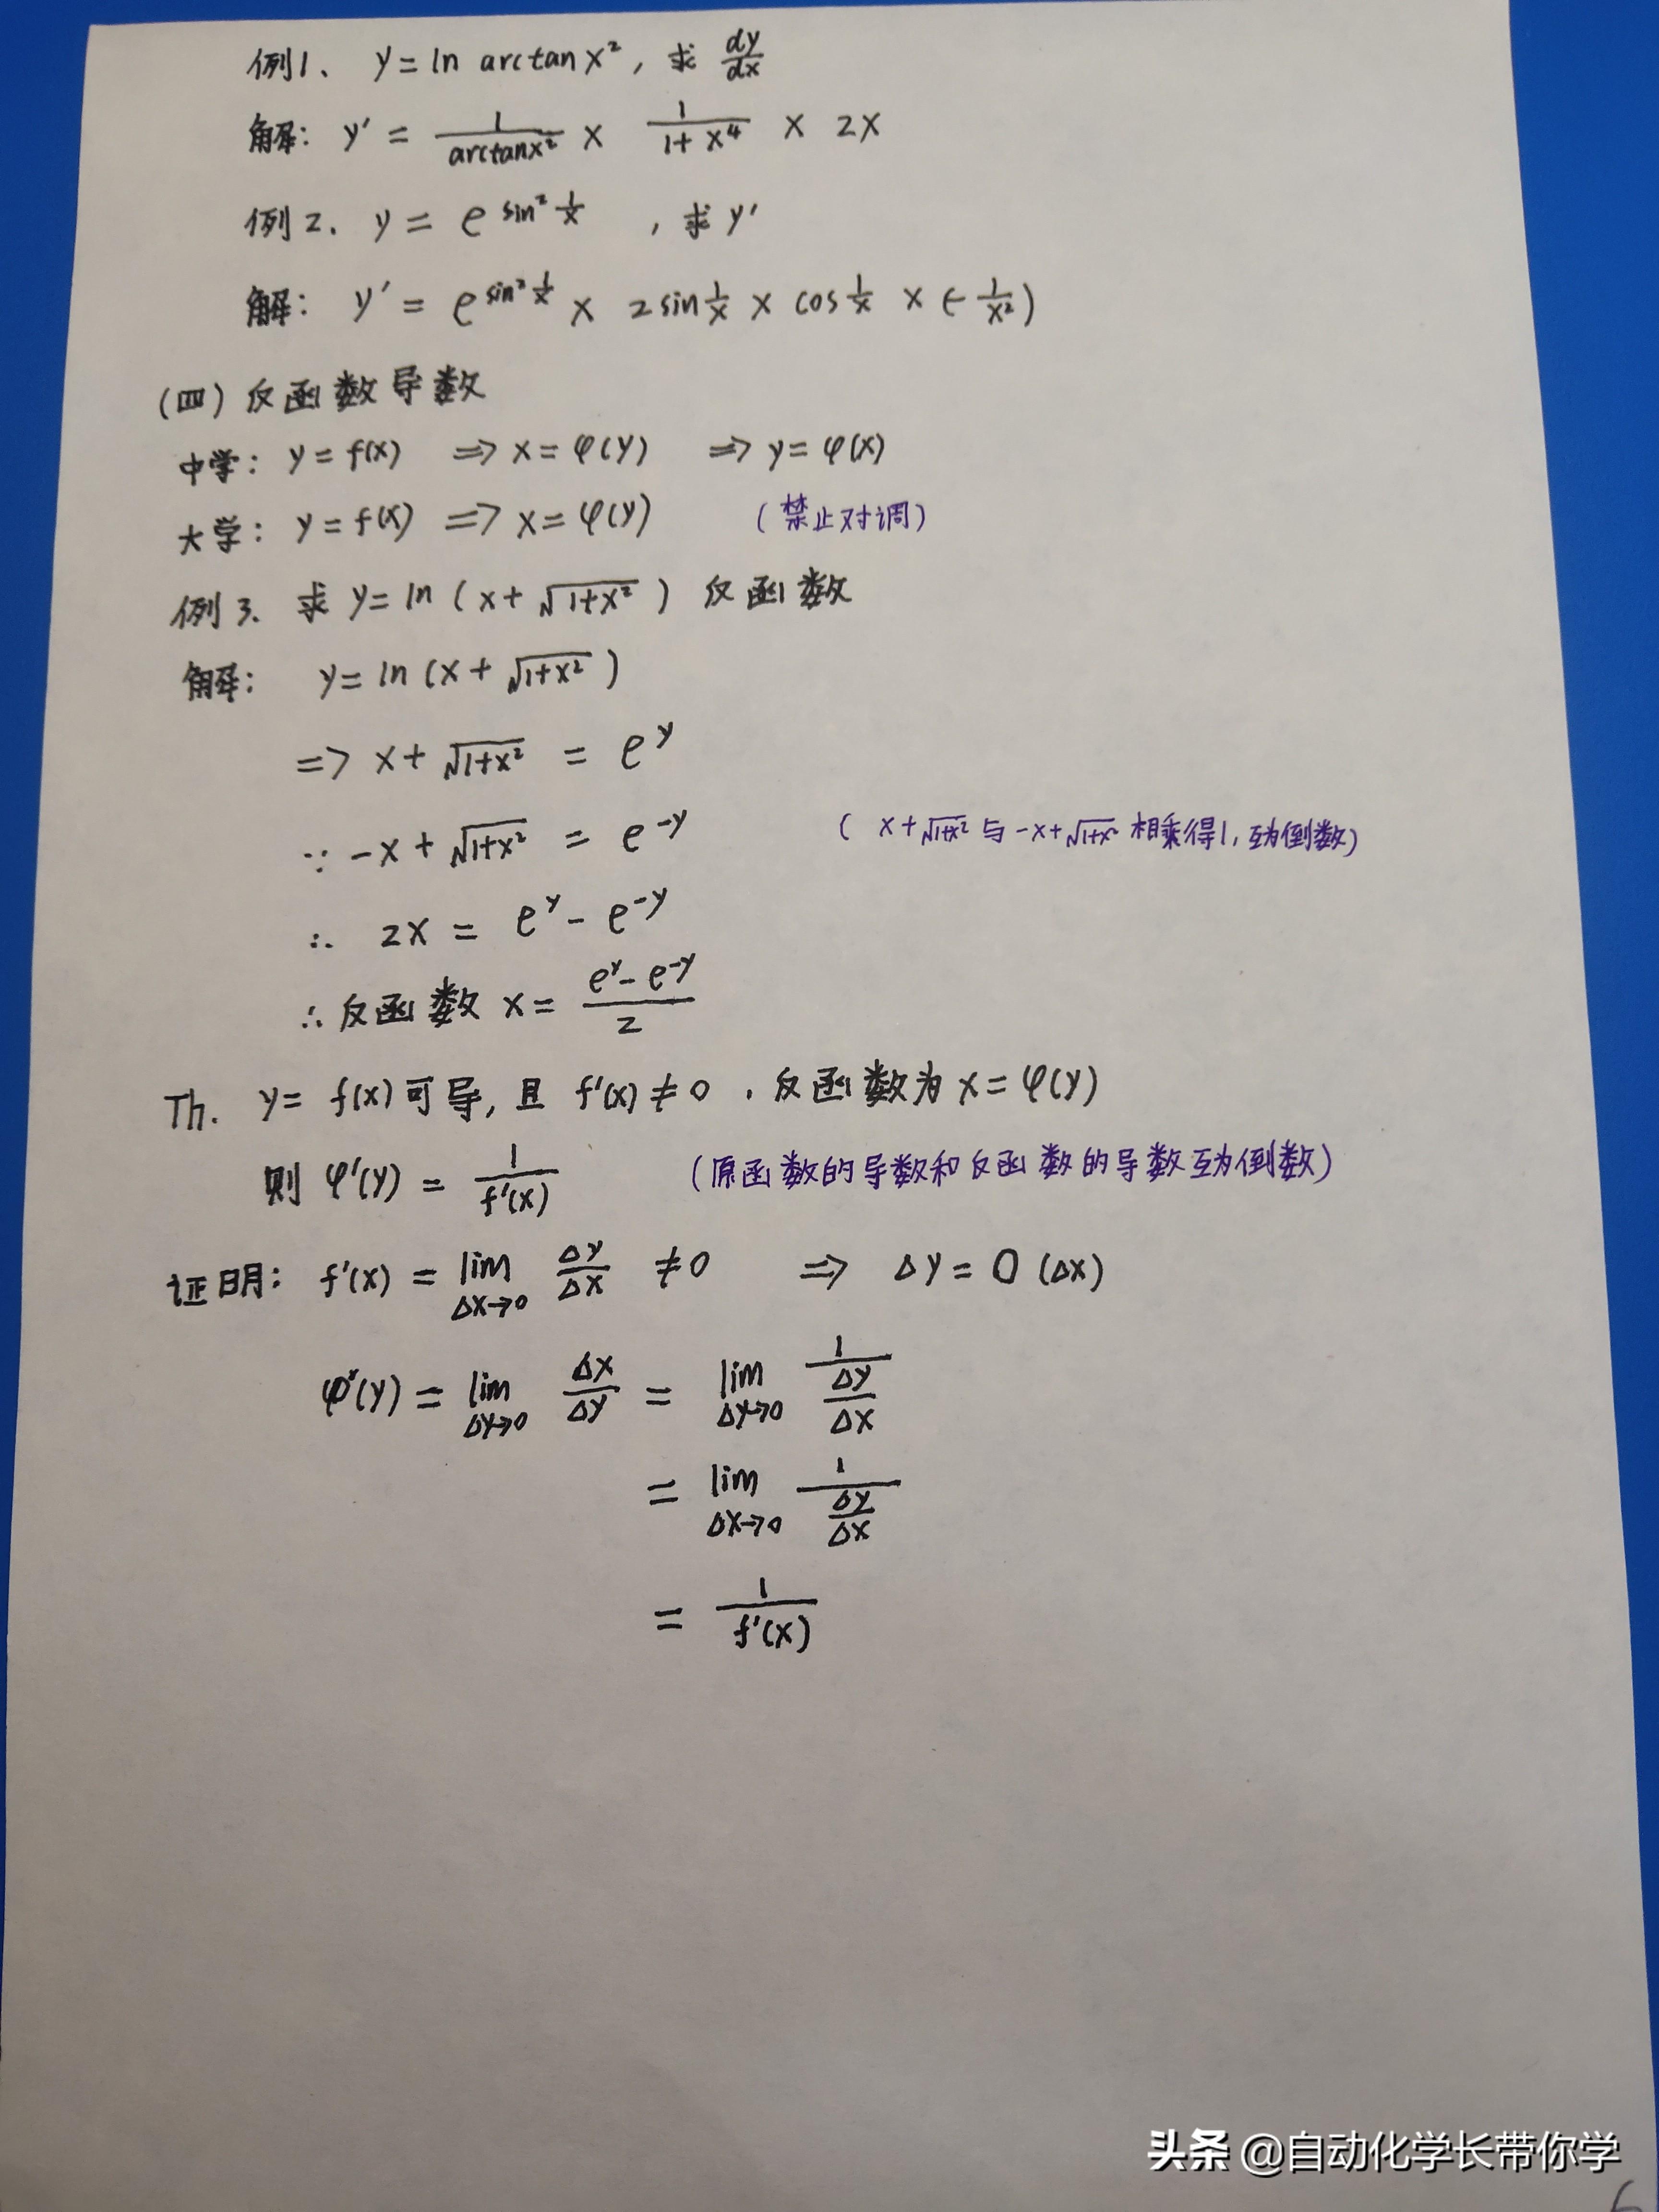 例1、 y = ln arctan x², 求 dy/dx
解: y' = 1/arctanx² × 1/(1+x⁴) × 2x
例2. y = e^(sin² 1/x) , 求 y'
解: y' = e^(sin² 1/x) × 2sin 1/x × cos 1/x × (-1/x²)
(四) 反函数导数
中学: y = f(x) => x = φ(y) => y = φ(x)
大学: y = f(x) => x = φ(y) (禁止对调)
例3、 求 y = ln (x + √(1+x²)) 反函数
解: y = ln (x + √(1+x²))
=> x + √(1+x²) = e^y
∵ -x + √(1+x²) = e^(-y) ( x+√(1+x²) 与 -x+√(1+x²) 相乘得1, 互为倒数)
∴ 2x = e^y - e^(-y)
∴ 反函数 x = (e^y - e^(-y))/2
Th. y = f(x) 可导, 且 f'(x) ≠ 0 . 反函数为 x = φ(y)
则 φ'(y) = 1/f'(x) (原函数的导数和反函数的导数互为倒数)
证明: f'(x) = lim Δx→0 Δy/Δx ≠ 0 => Δy = O (Δx)
φ'(y) = lim Δy→0 Δx/Δy = lim Δy→0 1/(Δy/Δx)
= lim Δx→0 1/(Δy/Δx)
= 1/f'(x)
头条 @自动化学长带你学